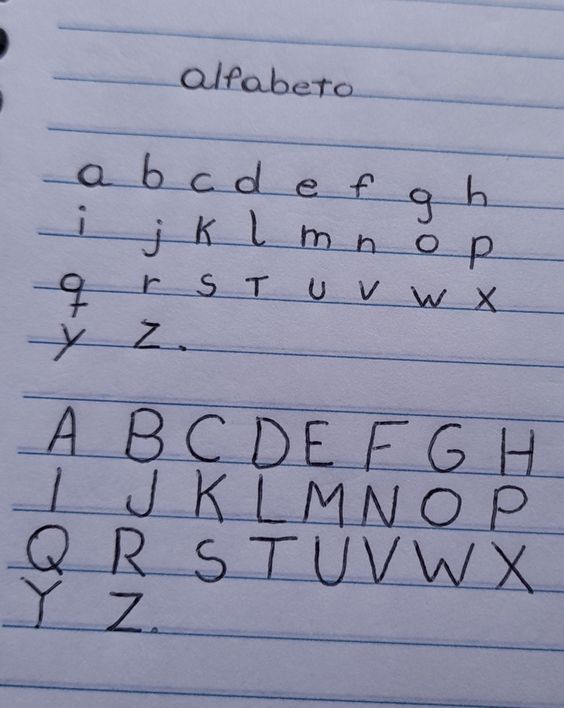 alfabeto
a b c d e f g h
i j k l m n o p
q r s T u v w x
y z.
A B C D E F G H
I J K L M N O P
Q R S T U V W X
Y Z.